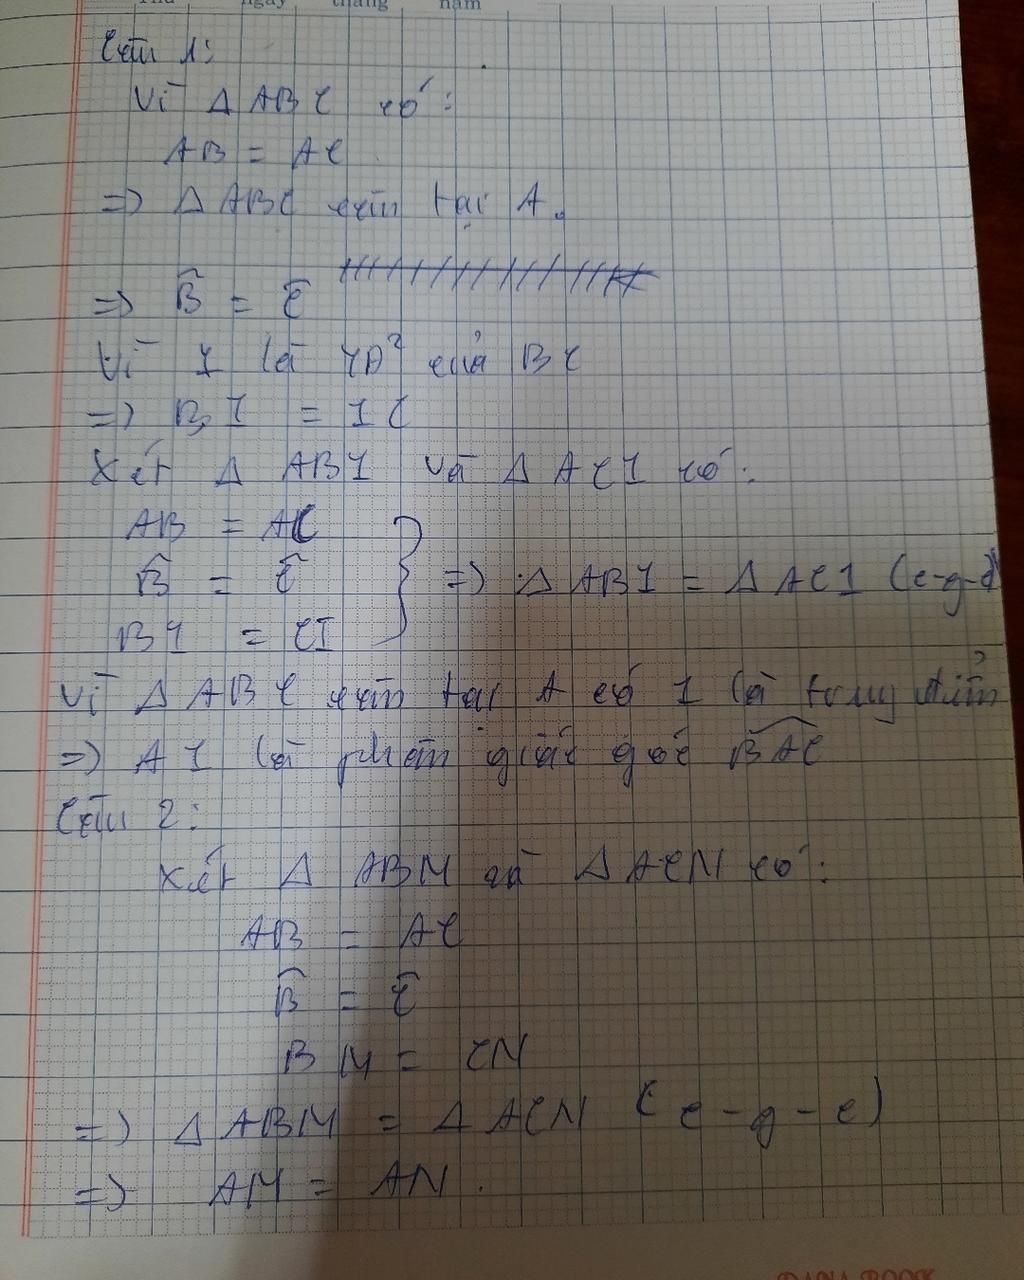 Thứ ngày tháng năm
Câu 1:
Vì Δ ABC có:
AB = AC
=> Δ ABC cân tại A.
=> B̂ = Ĉ
Vì I là TĐ² của BC
=> BI = IC
Xét Δ ABI và Δ ACI có:
AB = AC
B̂ = Ĉ
BI = CI
=> Δ ABI = Δ ACI (c-g-c)
Vì Δ ABC cân tại A có I là trung điểm
=> AI là phân giác góc BAC
Câu 2:
Xét Δ ABM và Δ ACN có:
AB = AC
B̂ = Ĉ
BM = CN
=> Δ ABM = Δ ACN (c-g-c)
=> AM = AN.